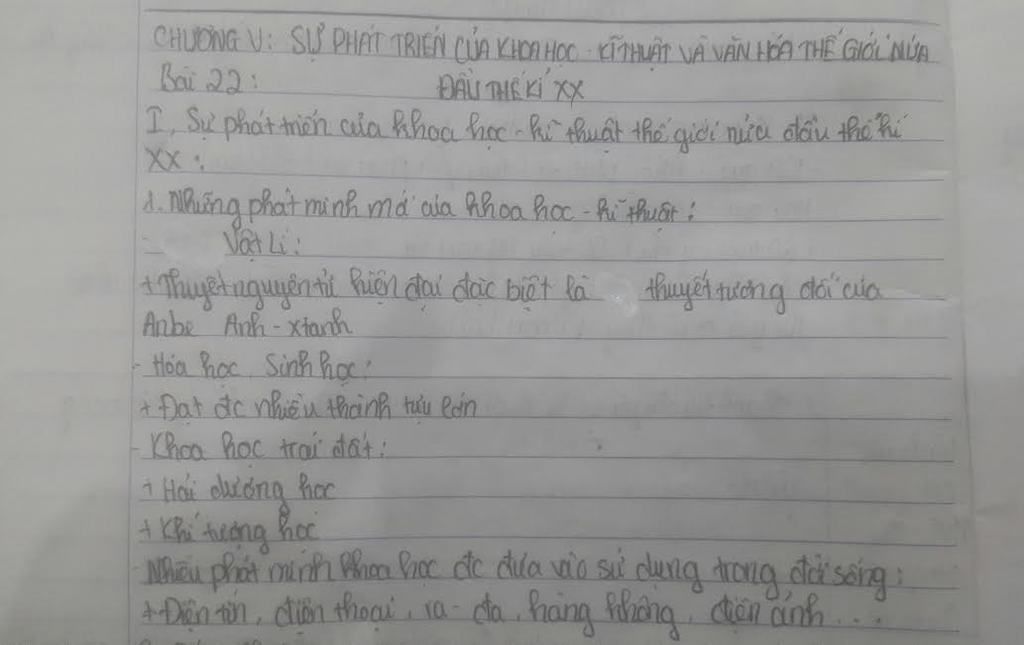 CHƯƠNG V: SỰ PHÁT TRIỂN CỦA KHOA HỌC - KĨ THUẬT VÀ VĂN HÓA THẾ GIỚI NỬA
Bài 22: ĐẦU THẾ KỈ XX
I, Sự phát triển của khoa học - kĩ thuật thế giới nửa đầu thế kỉ
XX:
1. Những phát minh mới của khoa học - kĩ thuật:
- Vật Lí:
+ Thuyết nguyên tử hiện đại đặc biệt là thuyết tương đối của
Anbe Anh-xtanh
- Hóa học Sinh học:
+ Đạt đc nhiều thành tựu lớn
- Khoa học trái đất:
+ Hải dương học
+ Khí tượng học
- Nhiều phát minh khoa học đc đưa vào sử dụng trong đời sống:
+ Điện tín, điện thoại, ra-đa, hàng không, điện ảnh...